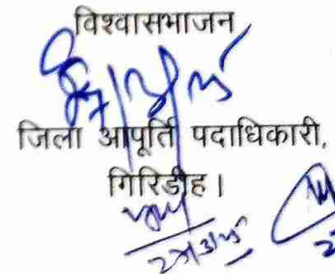 विश्वासभाजन
जिला आपूर्ति पदाधिकारी,
गिरिडीह।